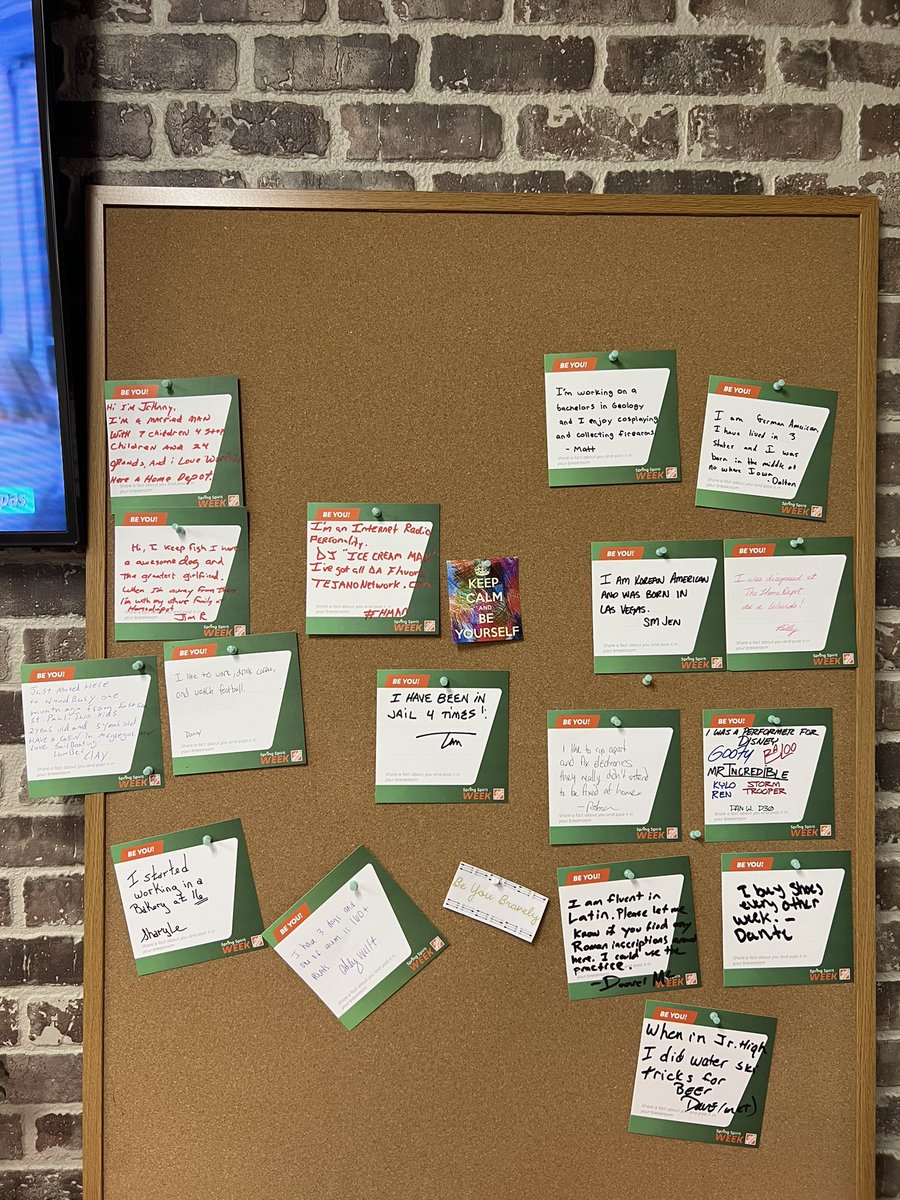 pas
BE YOU!
Hi I'm Johnny.
I'm a married MAN
With 7 children 4 Step
Children AND 24
grands, And i Love
Here a Home Depot.
Share a fact about you and post it in
your breakroom
Spring Spirit
WEEK
BE YOU!
Hi, I keep fish I have
a awesome dog and
the greatest girlfriend.
When I'm away from them
I'm with my other family at
Homedepot
Jim R
Spring Spirit
WEEK
BE YOU!
I'm an Internet Radio
Personality.
DJ "ICE CREAM MAN"
I've got all DA Flavor
TEJANO Network.Com
Share a fact about you and post it in
your breakroom
Spring Spirit
WEEK
KEEP
CALM
AND
BE
YOURSELF
BE YOU!
I'm working on a
bachelors in Geology
and I enjoy cosplaying
and collecting firearms
- Matt
Share a fact about you and post it in
your breakroom
Spring Spirit
WEEK
BE YOU!
I am German American
I have lived in 3
States and I was
born in the middle of
no where Iowa
-Dalton
Share a fact about you and post it in
your breakroom
Spring Spirit
WEEK
BE YOU!
I AM KOREAN AMERICAN
AND WAS BORN IN
LAS VEGAS.
SM JEN
Share a fact about you and post it in
your breakroom
Spring Spirit
WEEK
BE YOU!
I was diagnosed at
The HomeDepot
as a Weirdo!
Billy
Share a fact about you and post it in
your breakroom
Spring Spirit
WEEK
BE YOU!
Just Moved Here
to Woodbury one
month ago from
St Paul. Two Kids
2 years old and 5 year old
HAVE a
Love SailBoating
Lumber CLAY
Share a fact about you and post it in
your breakroom
Spring Spirit
WEEK
BE YOU!
I like to work, drink coffee,
and watch football.
Donny
Share a fact about you and post it in
your breakroom
Spring Spirit
WEEK
BE YOU!
I HAVE BEEN IN
JAIL 4 TIMES!
Share a fact about you and post it in
your breakroom
Spring Spirit
WEEK
BE YOU!
I like to rip apart
and fix electronics
they really didn't intend
to be fixed at home
Share a fact about you and post it in
your breakroom
Spring Spirit
WEEK
BE YOU!
I WAS A PERFORMER FOR
DISNEY
GOOFY BALOO
MR INCREDIBLE
KYLO STORM
REN TROOPER
DAN W. D30
Share a fact about you and post it in
your breakroom
Spring Spirit
WEEK
BE YOU!
I started
working in a
Bakery at 16
Sharyle
Share a fact about you and post it in
your breakroom
Spring Spirit
WEEK
BE YOU!
I have 3 dogs and
all of them is 100+
Share a fact about you and post it in
your breakroom
Spring Spirit
WEEK
Be You Bravely
BE YOU!
I am fluent in
Latin. Please let me
know if you find any
Roman inscriptions around
here. I could use the
practice.
-Daniel Mc
WEEK
BE YOU!
I buy shoes
every other
week! -
Dante
Share a fact about you and post it in
your breakroom
Spring Spirit
WEEK
BE YOU!
When in Jr. High
I did water ski
tricks for
BEER
Share a fact about you and post it in
your breakroom
Spring Spirit
WEEK